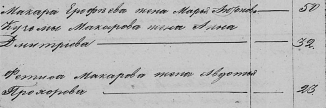 Макара Ерофѣева жена Марья Антонова 50
Кузьмы Макарова жена Анна
Дмитріева 32.
Макарова жена Авдотья
Прохорова 23.